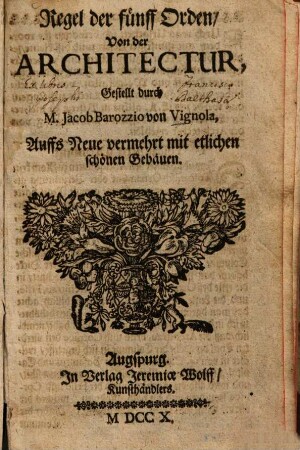 Regel der fünff Orden/
Von der
ARCHITECTUR,
Gestellt durch
M. Jacob Barozzio von Vignola,
Auffs Neue vermehrt mit etlichen
schönen Gebäuen.
Augspurg.
In Verlag Jeremiæ Wolff/
Kunsthändlers.
M DCC X.